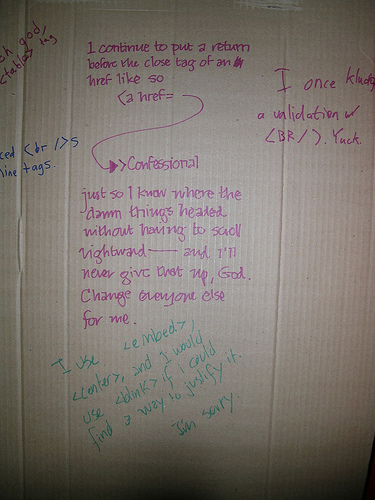 I continue to put a return
before the close tag of an
href like so
<a href=
>>Confessional
just so I know where the
damn things headed
without having to scroll
rightward — and I'll
never give that up, God.
Change everyone else
for me.
I once
a validation w/
<BR/>. Yuck.
oh god,
tag
<br />s
tags.
I use <embed>,
<center>, and I would
use <blink> if I could
find a way to justify it.
I'm sorry.